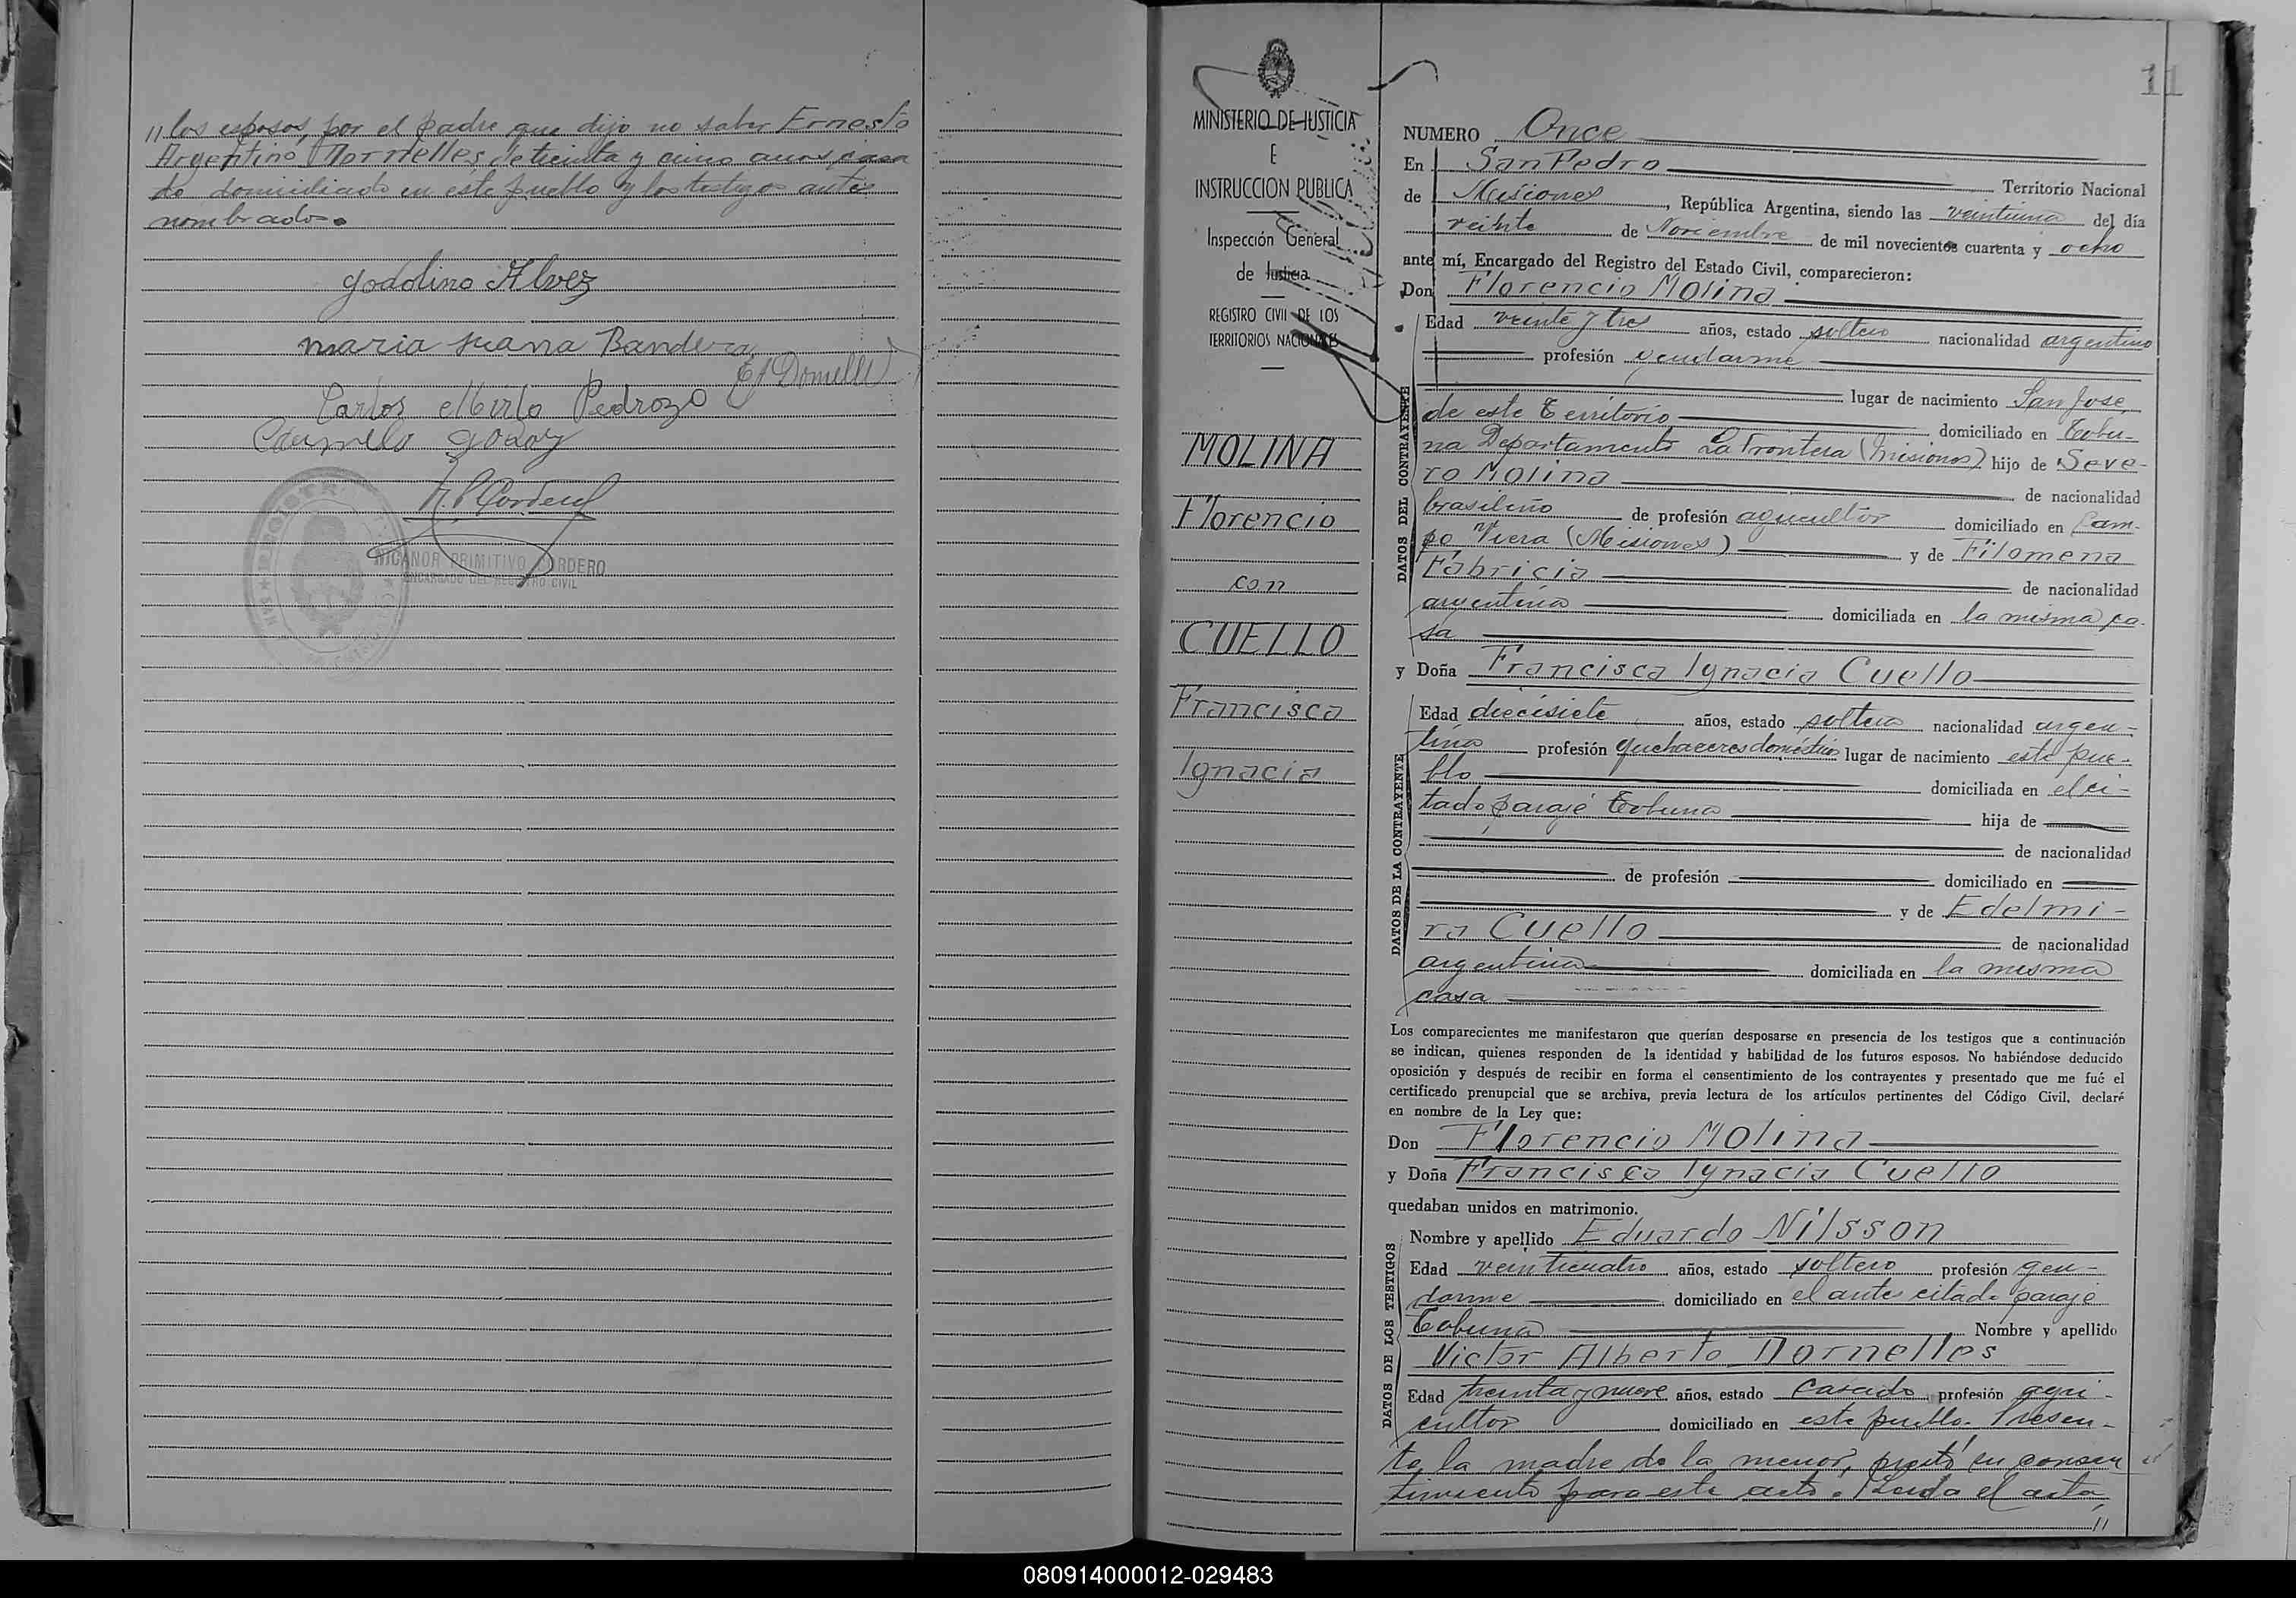 11 los esposos, por el padre que dijo no saber Ernesto
Argentino Dornelles de treinta y cinco años casa
do domiciliado en este pueblo y los testigos antes
nombrados.
Godolino Alvez
maria juana Bandera
Carlos Mirlo Pedrozo
Godoy
NICANOR PRIMITIVO CORDERO
ENCARGADO DEL REGISTRO CIVIL
MINISTERIO DE JUSTICIA
E
INSTRUCCION PUBLICA
Inspección General
de Justicia
REGISTRO CIVIL DE LOS
TERRITORIOS NACIONALES
MOLINA
Florencio
con
CUELLO
Francisca
Ignacia
11
NUMERO Once
En San Pedro Territorio Nacional
de Misiones, República Argentina, siendo las veintiuna del día
veinte de Noviembre de mil novecientos cuarenta y ocho
ante mí, Encargado del Registro del Estado Civil, comparecieron:
Don Florencio Molina
DATOS DEL CONTRAYENTE
Edad veinte y tres años, estado soltero nacionalidad argentino
profesión gendarme
lugar de nacimiento San Jose,
de este Territorio domiciliado en Tobu-
na Departamento La Frontera (Misiones) hijo de Seve-
ro Molina de nacionalidad
brasileño de profesión agricultor domiciliado en Cam-
po Viera (Misiones) y de Filomena
Fabricia de nacionalidad
argentina domiciliada en la misma ca-
sa
y Doña Francisca Ignacia Cuello
DATOS DE LA CONTRAYENTE
Edad diecisiete años, estado soltera nacionalidad argen-
tina profesión quehaceres domésticos lugar de nacimiento este pue-
blo domiciliada en el ci-
tado paraje Tobuna hija de
de nacionalidad
de profesión domiciliado en
y de Edelmi-
ra Cuello de nacionalidad
argentina domiciliada en la misma
casa
Los comparecientes me manifestaron que querían desposarse en presencia de los testigos que a continuación
se indican, quienes responden de la identidad y habilidad de los futuros esposos. No habiéndose deducido
oposición y después de recibir en forma el consentimiento de los contrayentes y presentado que me fué el
certificado prenupcial que se archiva, previa lectura de los artículos pertinentes del Código Civil, declaré
en nombre de la Ley que:
Don Florencio Molina
y Doña Francisca Ignacia Cuello
quedaban unidos en matrimonio.
DATOS DE LOS TESTIGOS
Nombre y apellido Eduardo Nilsson
Edad veinticuatro años, estado soltero profesión gen-
darme domiciliado en el antes citado paraje
Tobuna Nombre y apellido
Victor Alberto Dornelles
Edad treinta y nueve años, estado casado profesión agri-
cultor domiciliado en este pueblo. Presen-
te la madre de la menor, prestó su consen
timiento para este acto. Leida el acta
11
080914000012-029483